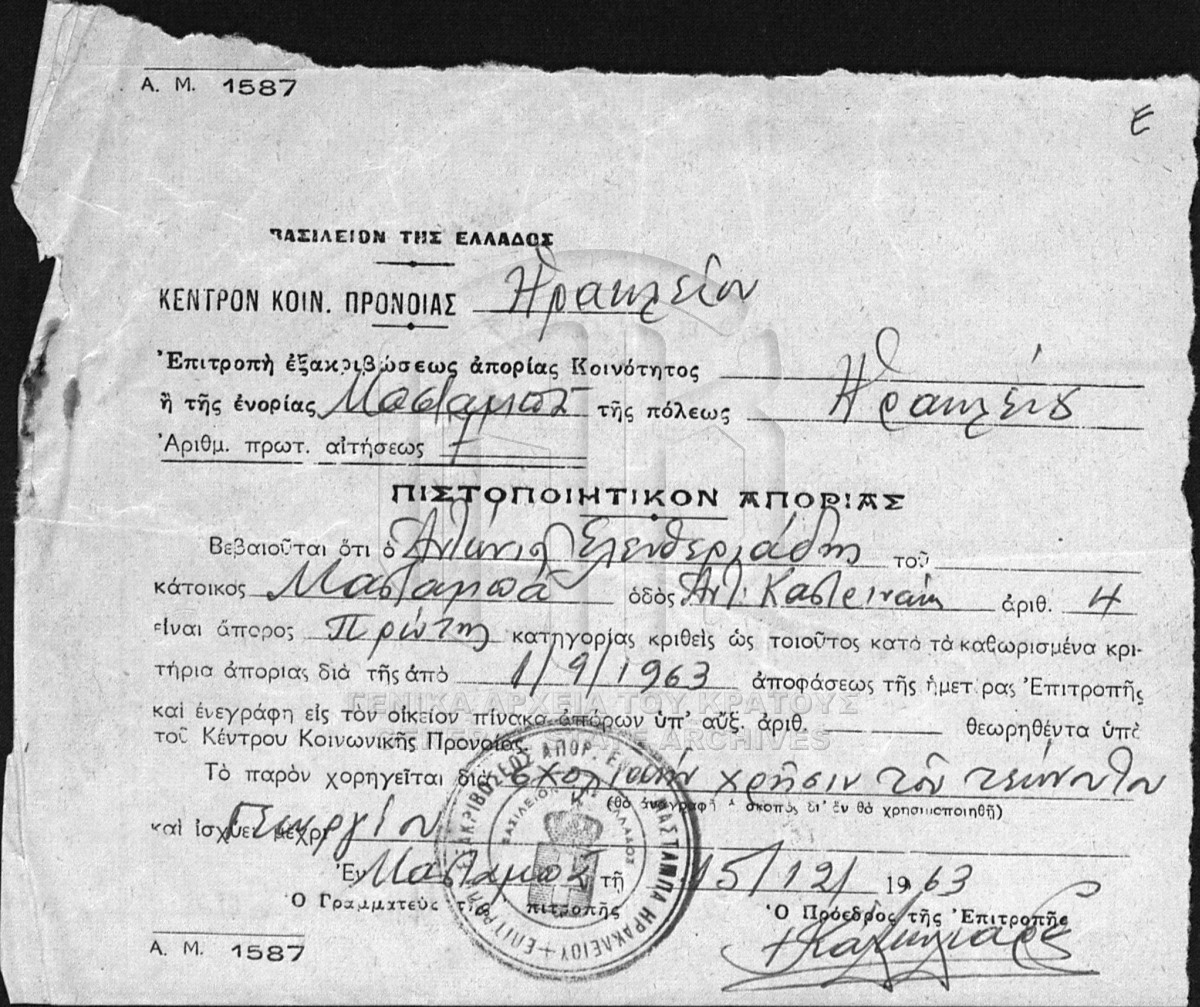 Α. Μ. 1587
Ε
ΒΑΣΙΛΕΙΟΝ ΤΗΣ ΕΛΛΑΔΟΣ
ΚΕΝΤΡΟΝ ΚΟΙΝ. ΠΡΟΝΟΙΑΣ Ἡρακλείου
Ἐπιτροπὴ ἐξακριβώσεως ἀπορίας Κοινότητος
ἢ τῆς ἐνορίας Μασταμπᾶ τῆς πόλεως Ἡρακλείου
Ἀριθμ. πρωτ. αἰτήσεως 7
ΠΙΣΤΟΠΟΙΗΤΙΚΟΝ ΑΠΟΡΙΑΣ
Βεβαιοῦται ὅτι ὁ Ἀντώνιος Ἐλευθεριάδης τοῦ
κάτοικος Μασταμπᾶ ὁδὸς Ἀντ. Καστρινάκη ἀριθ. 4
εἶναι ἄπορος Πρώτης κατηγορίας κριθεὶς ὡς τοιοῦτος κατὰ τὰ καθωρισμένα κρι-
τήρια ἀπορίας διὰ τῆς ἀπὸ 1/9/1963 ἀποφάσεως τῆς ἡμετέρας Ἐπιτροπῆς
καὶ ἐνεγράφη εἰς τὸν οἰκεῖον πίνακα ἀπόρων ὑπ' αὔξ. ἀριθ. θεωρηθέντα ὑπὸ
τοῦ Κέντρου Κοινωνικῆς Προνοίας.
ΓΕΝΙΚΑ ΑΡΧΕΙΑ ΤΟΥ ΚΡΑΤΟΥΣ
GENERAL STATE ARCHIVES
Τὸ παρὸν χορηγεῖται διὰ σχολικὴν χρῆσιν τοῦ τέκνου του
(θὰ ἀναγραφῇ ὁ σκοπὸς δι' ὃν θὰ χρησιμοποιηθῇ)
καὶ ἰσχύει μέχρι Γεωργίου
Ἐν Μασταμπᾶ τῇ 15/12/1963
Ὁ Γραμματεὺς τῆς Ἐπιτροπῆς Ὁ Πρόεδρος τῆς Ἐπιτροπῆς
ΕΠΙΤΡΟΠΗ ΕΞΑΚΡΙΒΩΣΕΩΣ ΑΠΟΡ. ΜΑΣΤΑΜΠΑ ΗΡΑΚΛΕΙΟΥ
ΒΑΣΙΛΕΙΟΝ ΤΗΣ ΕΛΛΑΔΟΣ
Α. Μ. 1587